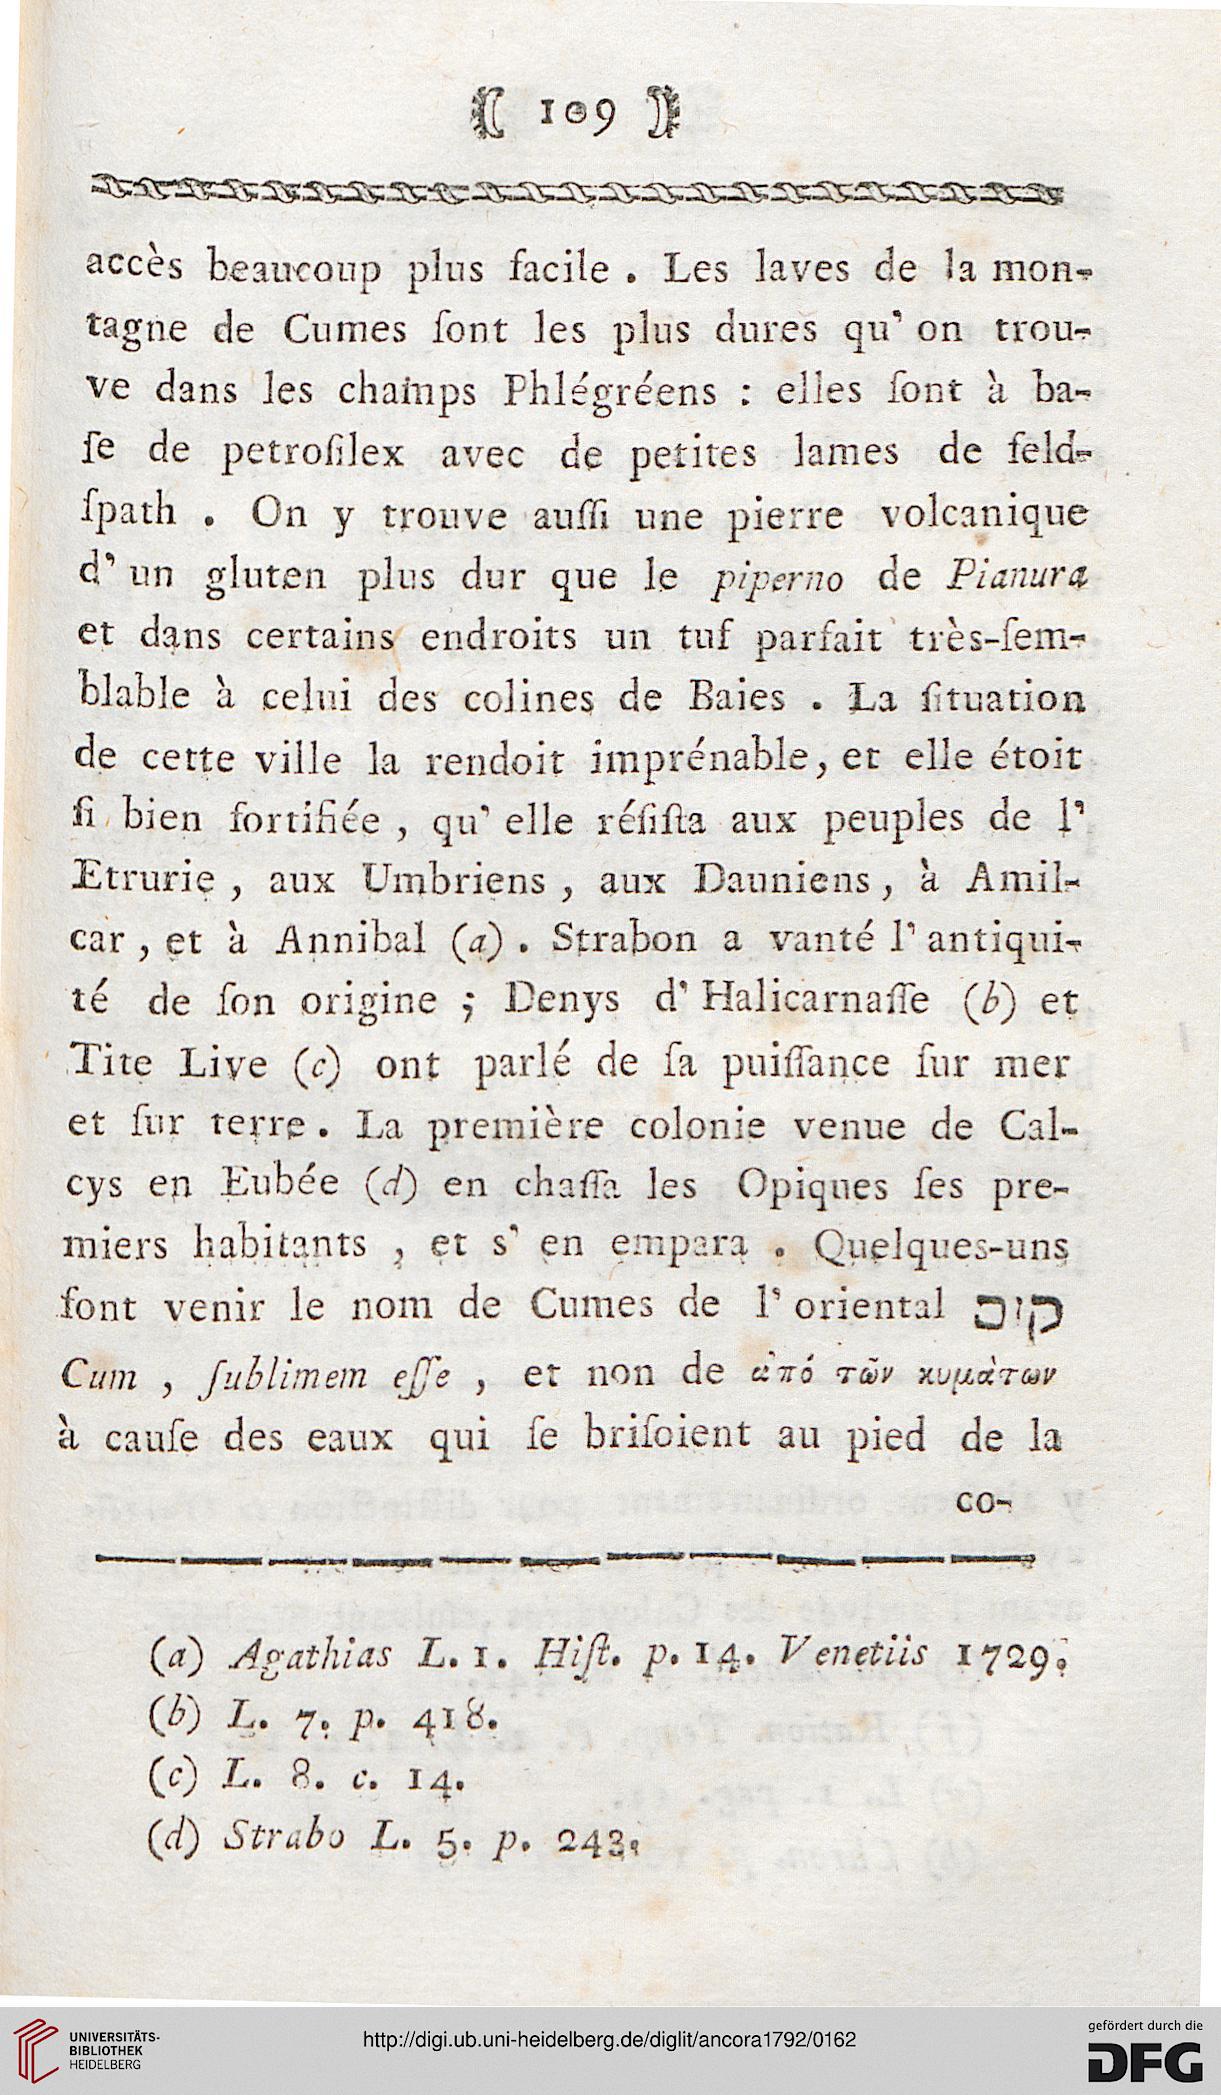 109
accès beaucoup plus facile . Les laves de la mon-
tagne de Cumes ſont les plus dures qu' on trou-
ve dans les champs Phlégréens : elles ſont à ba-
ſe de petroſilex avec de petites lames de feld-
ſpath . On y trouve auſſi une pierre volcanique
d' un gluten plus dur que le piperno de Pianura
et dans certains endroits un tuf parfait très-ſem-
blable à celui des colines de Baies . La ſituation
de cette ville la rendoit imprénable, et elle étoit
ſi bien fortifiée , qu' elle réſiſta aux peuples de l'
Etrurie , aux Umbriens , aux Dauniens, à Amil-
car , et à Annibal (a) . Strabon a vanté l' antiqui-
té de ſon origine ; Denys d' Halicarnaſſe (b) et
Tite Live (c) ont parlé de ſa puiſſance ſur mer
et ſur terre. La première colonie venue de Cal-
cys en Eubée (d) en chaſſa les Opiques ſes pre-
miers habitants , et s' en empara . Quelques-uns
font venir le nom de Cumes de l' oriental קום
Cum , ſublimem eſſe , et non de ἀπό τῶν κυμὰτων
à cauſe des eaux qui ſe briſoient au pied de la
co-
(a) Agathias L. 1. Hiſt. p. 14. Venetiis 1729.
(b) L. 7. p. 418.
(c) L. 8. c. 14.
(d) Strabo L. 5. p. 243.
UNIVERSITÄTS-
BIBLIOTHEK
HEIDELBERG
http://digi.ub.uni-heidelberg.de/diglit/ancora1792/0162
gefördert durch die
DFG